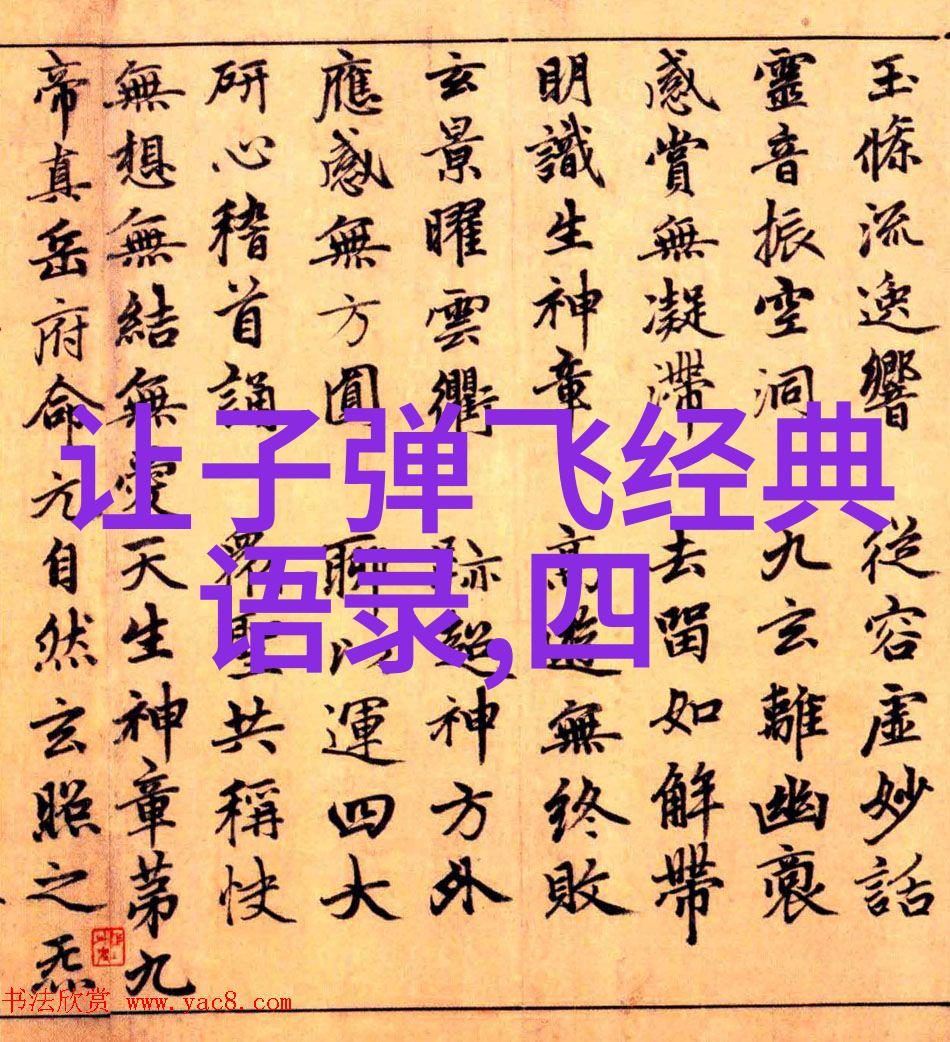 玉條流逸響 從容虛妙話
靈音振空洞 九玄離幽
感賞無凝滯 去留如解帶
明識生神章 高遊無終敗
玄景曜雲衢 跡超神方外
應感無方圓 聊以運四大
研心稽首誦 聖共稱快
無想無結無愛天生神章第九
帝真岳府命元自然玄照之炁
让子弹飞经典
语录,四
书法欣赏 www.yac8.com